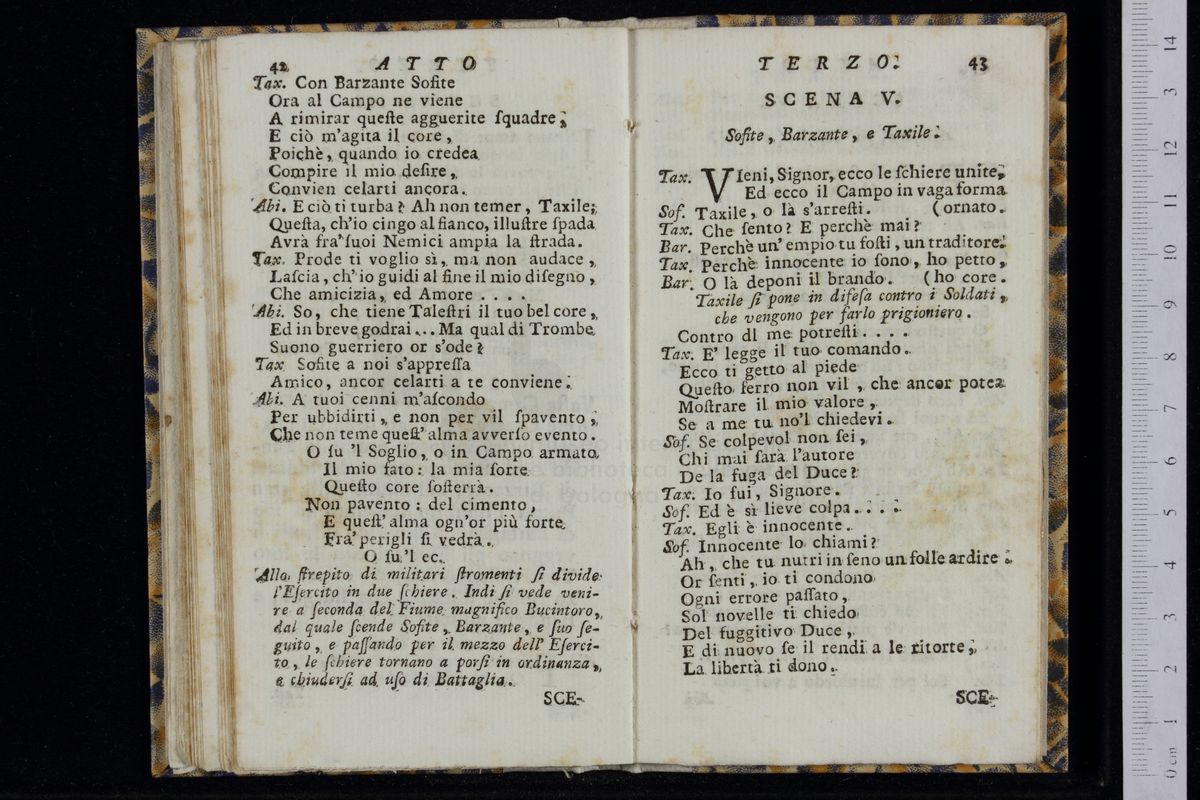 42 ATTO
Tax. Con Barzante Sofite
Ora al Campo ne viene
A rimirar queſte agguerite ſquadre;
E ciò m'agita il core,
Poichè, quando io credea
Compire il mio deſire,
Convien celarti ancora.
Abi. E ciò ti turba? Ah non temer, Taxile;
Queſta, ch'io cingo al fianco, illuſtre ſpada
Avrà fra' ſuoi Nemici ampia la ſtrada.
Tax. Prode ti voglio sì, ma non audace,
Laſcia, ch'io guidi al fine il mio diſegno,
Che amicizia, ed Amore . . . .
Abi. So, che tiene Taleſtri il tuo bel core,
Ed in breve godrai... Ma qual di Trombe
Suono guerriero or s'ode?
Tax Sofite a noi s'appreſſa
Amico, ancor celarti a te conviene.
Abi. A tuoi cenni m'aſcondo
Per ubbidirti, e non per vil ſpavento;
Che non teme queſt' alma avverſo evento.
O ſu 'l Soglio, o in Campo armato
Il mio fato: la mia ſorte
Queſto core ſoſterrà.
Non pavento: del cimento,
E queſt' alma ogn'or più forte
Fra' perigli ſi vedrà.
O ſu'l ec.
Allo ſtrepito di militari ſtromenti ſi divide
l'Eſercito in due ſchiere. Indi ſi vede veni-
re a ſeconda del Fiume magnifico Bucintoro,
dal quale ſcende Sofite, Barzante, e ſuo ſe-
guito, e paſſando per il mezzo dell' Eſerci-
to, le ſchiere tornano a porſi in ordinanza,
e chiuderſi ad uſo di Battaglia.
SCE-
TERZO. 43
SCENA V.
Sofite, Barzante, e Taxile.
Tax. VIeni, Signor, ecco le ſchiere unite,
Ed ecco il Campo in vaga forma
Sof. Taxile, o là s'arreſti. (ornato.
Tax. Che ſento? E perchè mai?
Bar. Perchè un' empio tu foſti, un traditore.
Tax. Perchè innocente io ſono, ho petto,
Bar. O là deponi il brando. (ho core.
Taxile ſi pone in difeſa contro i Soldati,
che vengono per farlo prigioniero.
Contro dI me potreſti. . . .
Tax. E' legge il tuo comando.
Ecco ti getto al piede
Queſto ferro non vil, che ancor potea
Moſtrare il mio valore,
Se a me tu no'l chiedevi.
Sof. Se colpevol non ſei,
Chi mai ſarà l'autore
De la fuga del Duce?
Tax. Io fui, Signore.
Sof. Ed è sì lieve colpa. . . .
Tax. Egli è innocente.
Sof. Innocente lo chiami?
Ah, che tu nutri in ſeno un folle ardire.
Or ſenti, io ti condono
Ogni errore paſſato,
Sol novelle ti chiedo
Del fuggitivo Duce,
E di nuovo ſe il rendi a le ritorte,
La libertà ti dono.
SCE-
14
3
12
11
10
9
8
7
6
5
4
3
2
1
0 cm